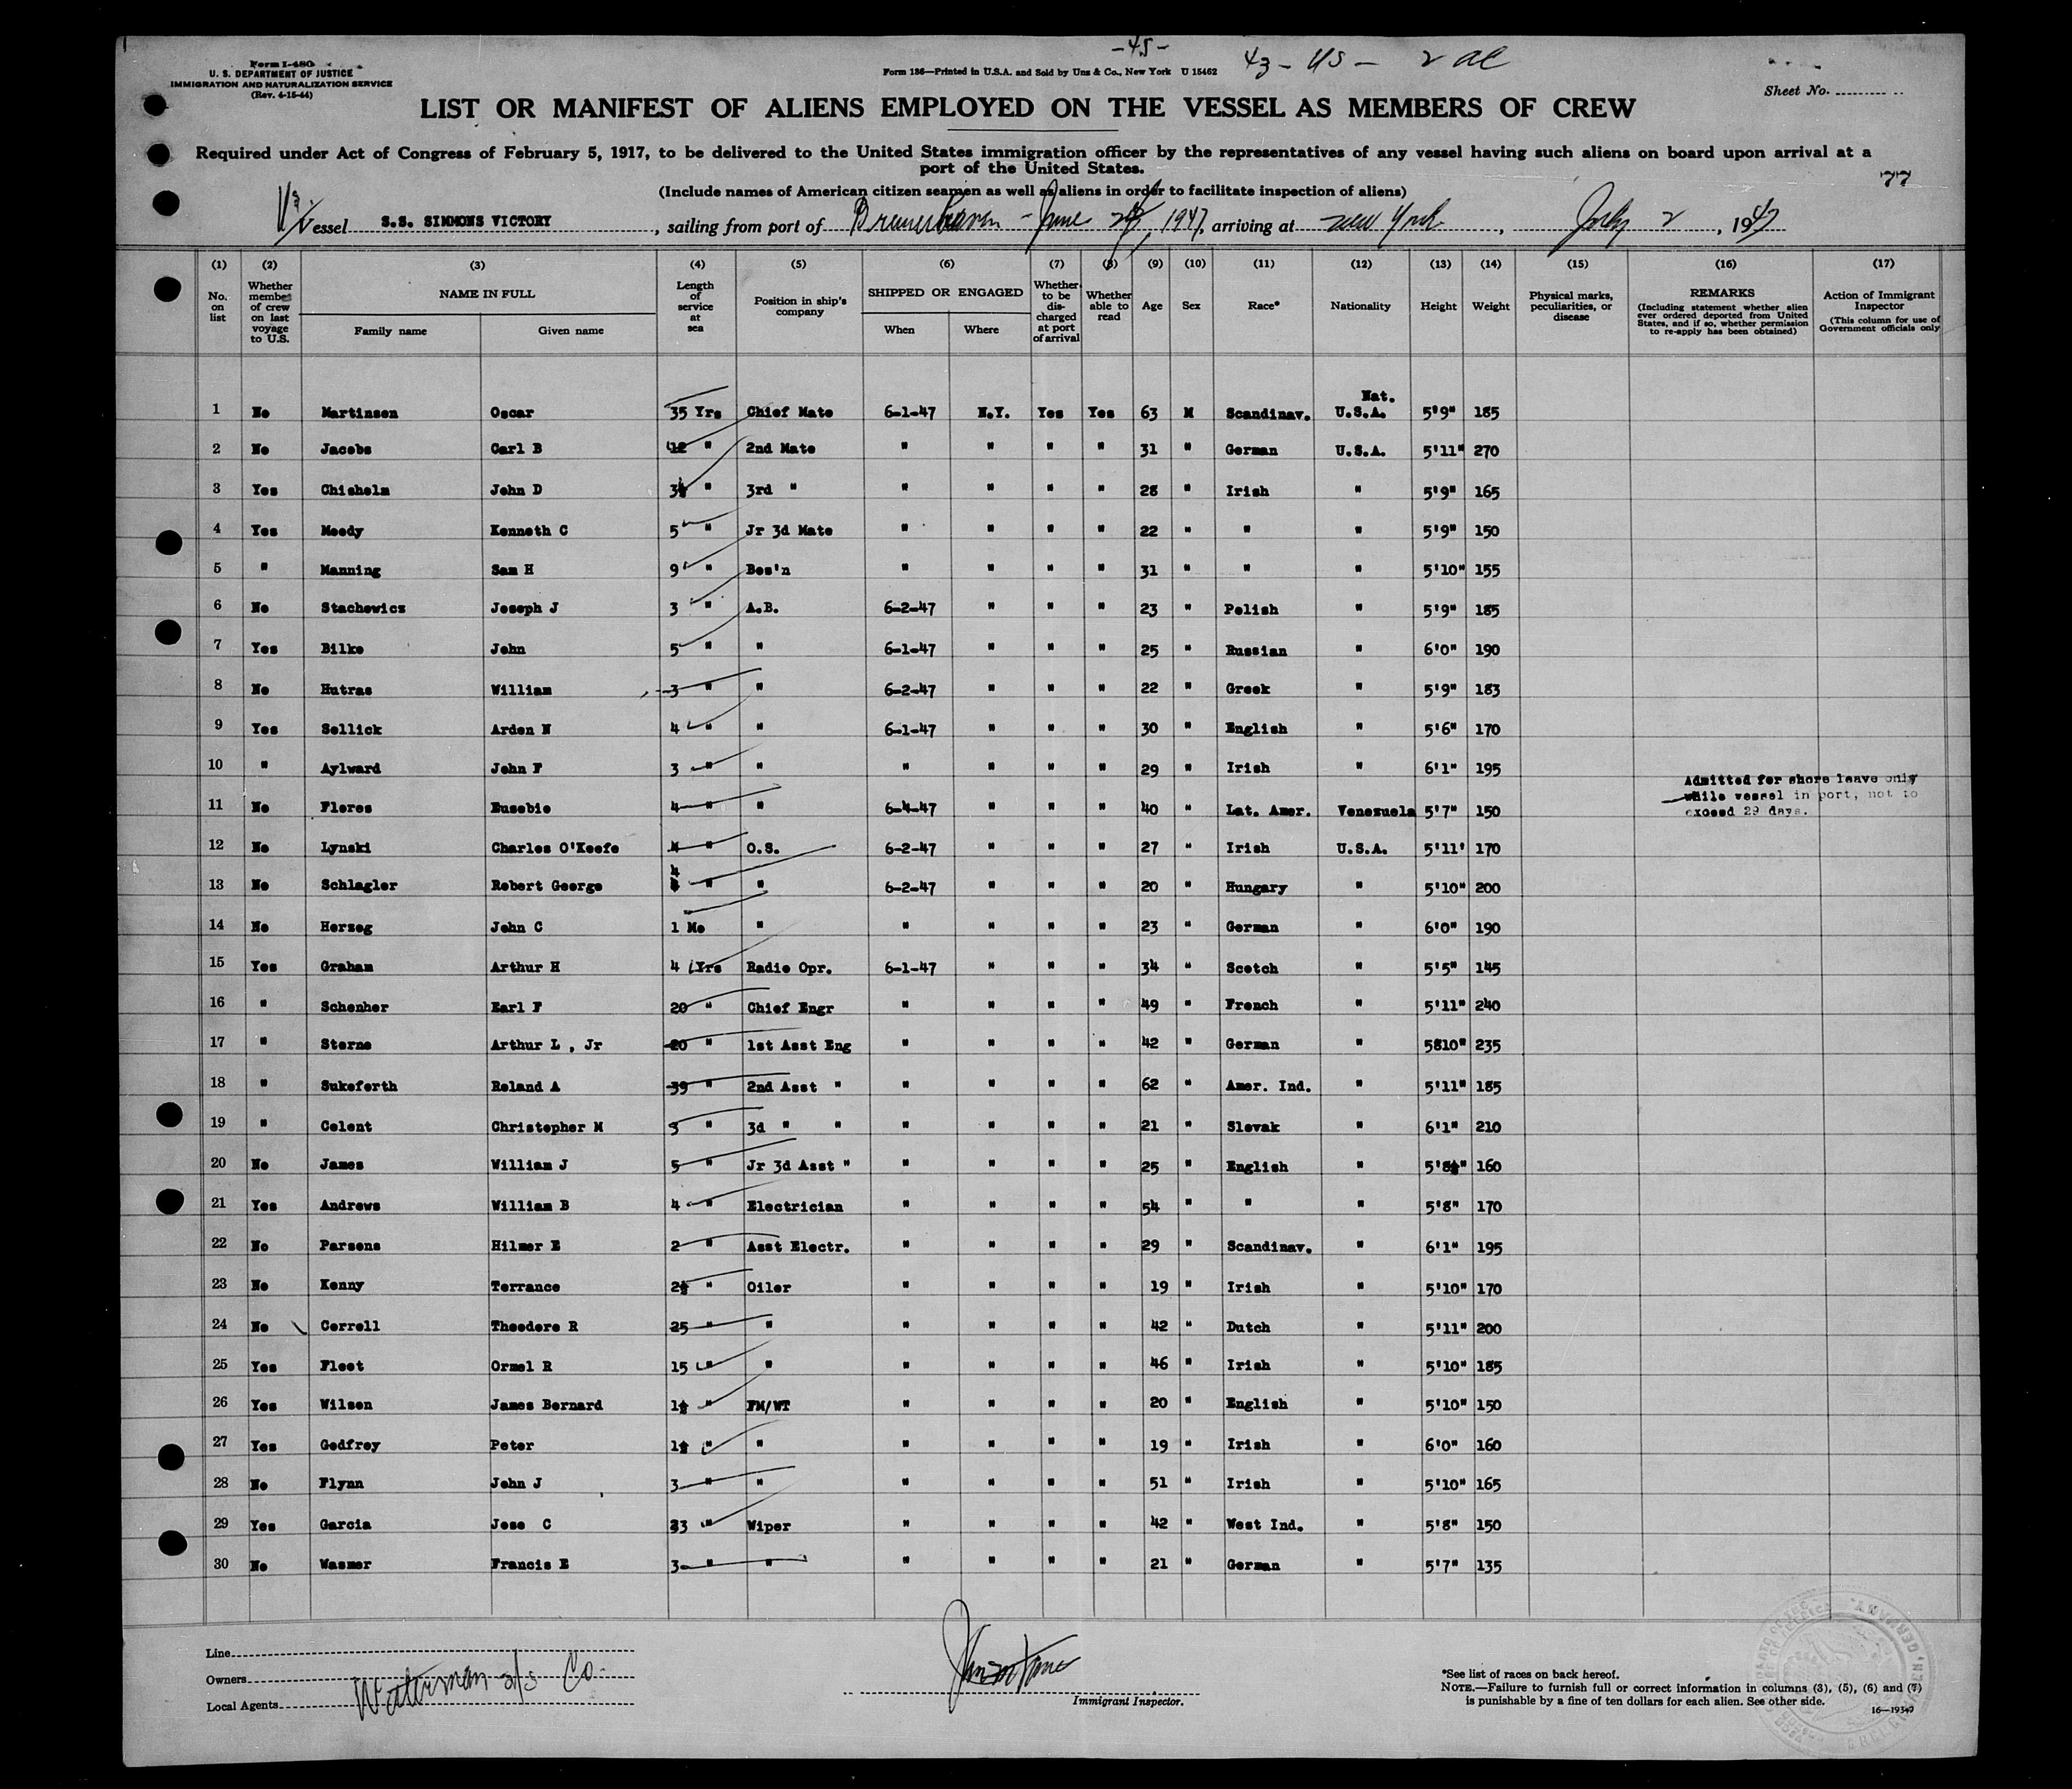 -45-
43 - US - 2 al
Form I-480
U. S. DEPARTMENT OF JUSTICE
IMMIGRATION AND NATURALIZATION SERVICE
(Rev. 4-15-44)
Form 186—Printed in U.S.A. and Sold by Unz & Co., New York U 15462
Sheet No.
LIST OR MANIFEST OF ALIENS EMPLOYED ON THE VESSEL AS MEMBERS OF CREW
Required under Act of Congress of February 5, 1917, to be delivered to the United States immigration officer by the representatives of any vessel having such aliens on board upon arrival at a
port of the United States.
(Include names of American citizen seamen as well as aliens in order to facilitate inspection of aliens)
77
Vessel S.S. SIMMONS VICTORY, sailing from port of Bremerhaven - June, 1947, arriving at New York, July 2, 1947
(1) (2) (3) (4) (5) (6) (7) (8) (9) (10) (11) (12) (13) (14) (15) (16) (17)
No. on list
Whether member of crew on last voyage to U.S.
NAME IN FULL
Family name Given name
Length of service at sea
Position in ship's company
SHIPPED OR ENGAGED
When Where
Whether to be discharged at port of arrival
Whether able to read
Age Sex Race* Nationality Height Weight
Physical marks, peculiarities, or disease
REMARKS
(Including statement whether alien ever ordered deported from United States, and if so, whether permission to re-apply has been obtained)
Action of Immigrant Inspector
(This column for use of Government officials only
1 No Martinsen Oscar 35 Yrs Chief Mate 6-1-47 N.Y. Yes Yes 63 M Scandinav. Nat. U.S.A. 5'9" 185
2 No Jacobs Carl B 12 " 2nd Mate " " " " 31 " German U.S.A. 5'11" 270
3 Yes Chisholm John D 3½ " 3rd " " " " " 28 " Irish " 5'9" 165
4 Yes Moody Kenneth C 5 " Jr 3d Mate " " " " 22 " " " 5'9" 150
5 " Manning Sam H 9 " Bos'n " " " " 31 " " " 5'10" 155
6 No Stachewicz Joseph J 3 " A.B. 6-2-47 " " " 23 " Polish " 5'9" 185
7 Yes Bilko John 5 " " 6-1-47 " " " 25 " Russian " 6'0" 190
8 No Hutras William 3 " " 6-2-47 " " " 22 " Greek " 5'9" 183
9 Yes Sellick Arden N 4 " " 6-1-47 " " " 30 " English " 5'6" 170
10 " Aylward John F 3 " " " " " " 29 " Irish " 6'1" 195
11 No Flores Eusebio 4 " " 6-4-47 " " " 40 " Lat. Amer. Venezuela 5'7" 150 Admitted for shore leave only
while vessel in port, not to
exceed 29 days.
12 No Lynski Charles O'Keefe 4 " O.S. 6-2-47 " " " 27 " Irish U.S.A. 5'11' 170
13 No Schlagler Robert George 4 " " 6-2-47 " " " 20 " Hungary " 5'10" 200
14 No Herzog John C 1 Mo " " " " " 23 " German " 6'0" 190
15 Yes Graham Arthur H 4 Yrs Radio Opr. 6-1-47 " " " 34 " Scotch " 5'5" 145
16 " Schenher Earl F 20 " Chief Engr " " " " 49 " French " 5'11" 240
17 " Sterne Arthur L , Jr 20 " 1st Asst Eng " " " " 42 " German " 5810" 235
18 " Sukeforth Roland A 39 " 2nd Asst " " " " " 62 " Amer. Ind. " 5'11" 185
19 " Celent Christopher M 3 " 3d " " " " " " 21 " Slovak " 6'1" 210
20 No James William J 5 " Jr 3d Asst " " " " " 25 " English " 5'8½" 160
21 Yes Andrews William B 4 " Electrician " " " " 54 " " " 5'8" 170
22 No Parsons Hilmer E 2 " Asst Electr. " " " " 29 " Scandinav. " 6'1" 195
23 No Kenny Terrance 2½ " Oiler " " " " 19 " Irish " 5'10" 170
24 No Correll Theodore R 25 " " " " " " 42 " Dutch " 5'11" 200
25 Yes Fleet Ormel R 15 " " " " " " 46 " Irish " 5'10" 185
26 Yes Wilson James Bernard 1½ " FM/WT " " " " 20 " English " 5'10" 150
27 Yes Godfrey Peter 1½ " " " " " " 19 " Irish " 6'0" 160
28 No Flynn John J 3 " " " " " " 51 " Irish " 5'10" 165
29 Yes Garcia Jose C 23 " Wiper " " " " 42 " West Ind. " 5'8" 150
30 No Wasmer Francis E 3 " " " " " " 21 " German " 5'7" 135
Line
Owners Waterman S/S Co.
Local Agents
Immigrant Inspector.
*See list of races on back hereof.
NOTE.—Failure to furnish full or correct information in columns (3), (5), (6) and (7)
is punishable by a fine of ten dollars for each alien. See other side.